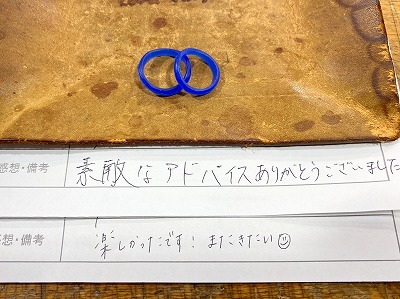 感想・備考
素敵なアドバイスありがとうございました
想・備考
楽しかったです！またきたい☺